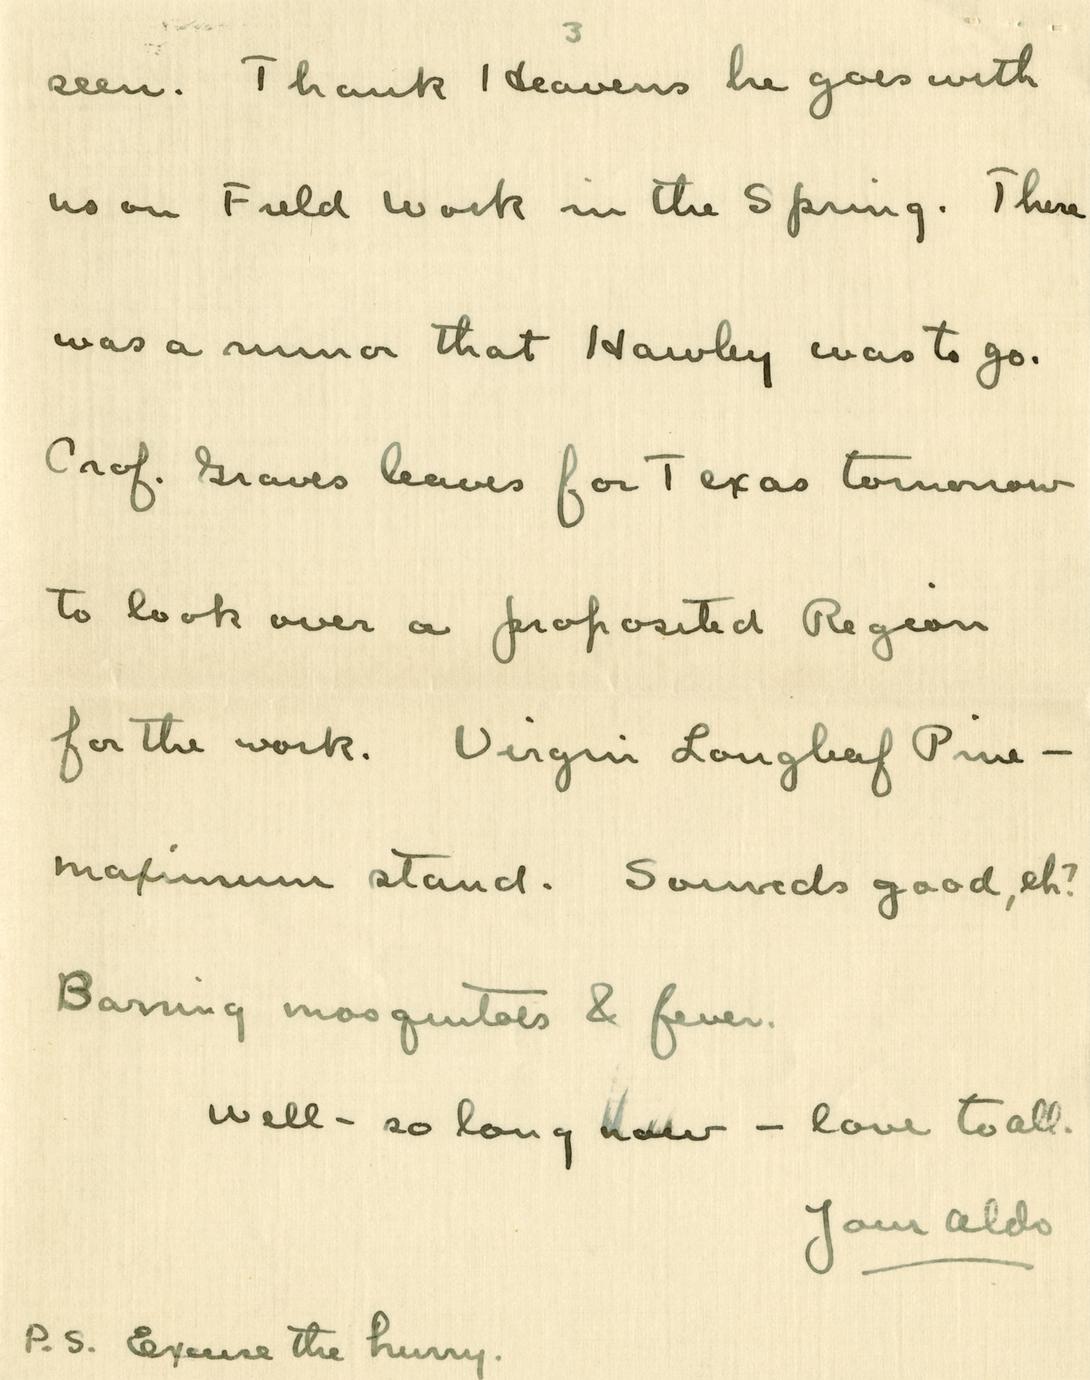 3
seen. Thank Heavens he goes with
us on Field Work in the Spring. There
was a rumor that Hawley was to go.
Prof. Graves leaves for Texas tomorrow
to look over a proposited Region
for the work. Virgin Longleaf Pine –
maximum stand. Sounds good, eh?
Barring mosquitoes & fever.
Well – so long now – love to all.
Your Aldo
P.S. Excuse the hurry.